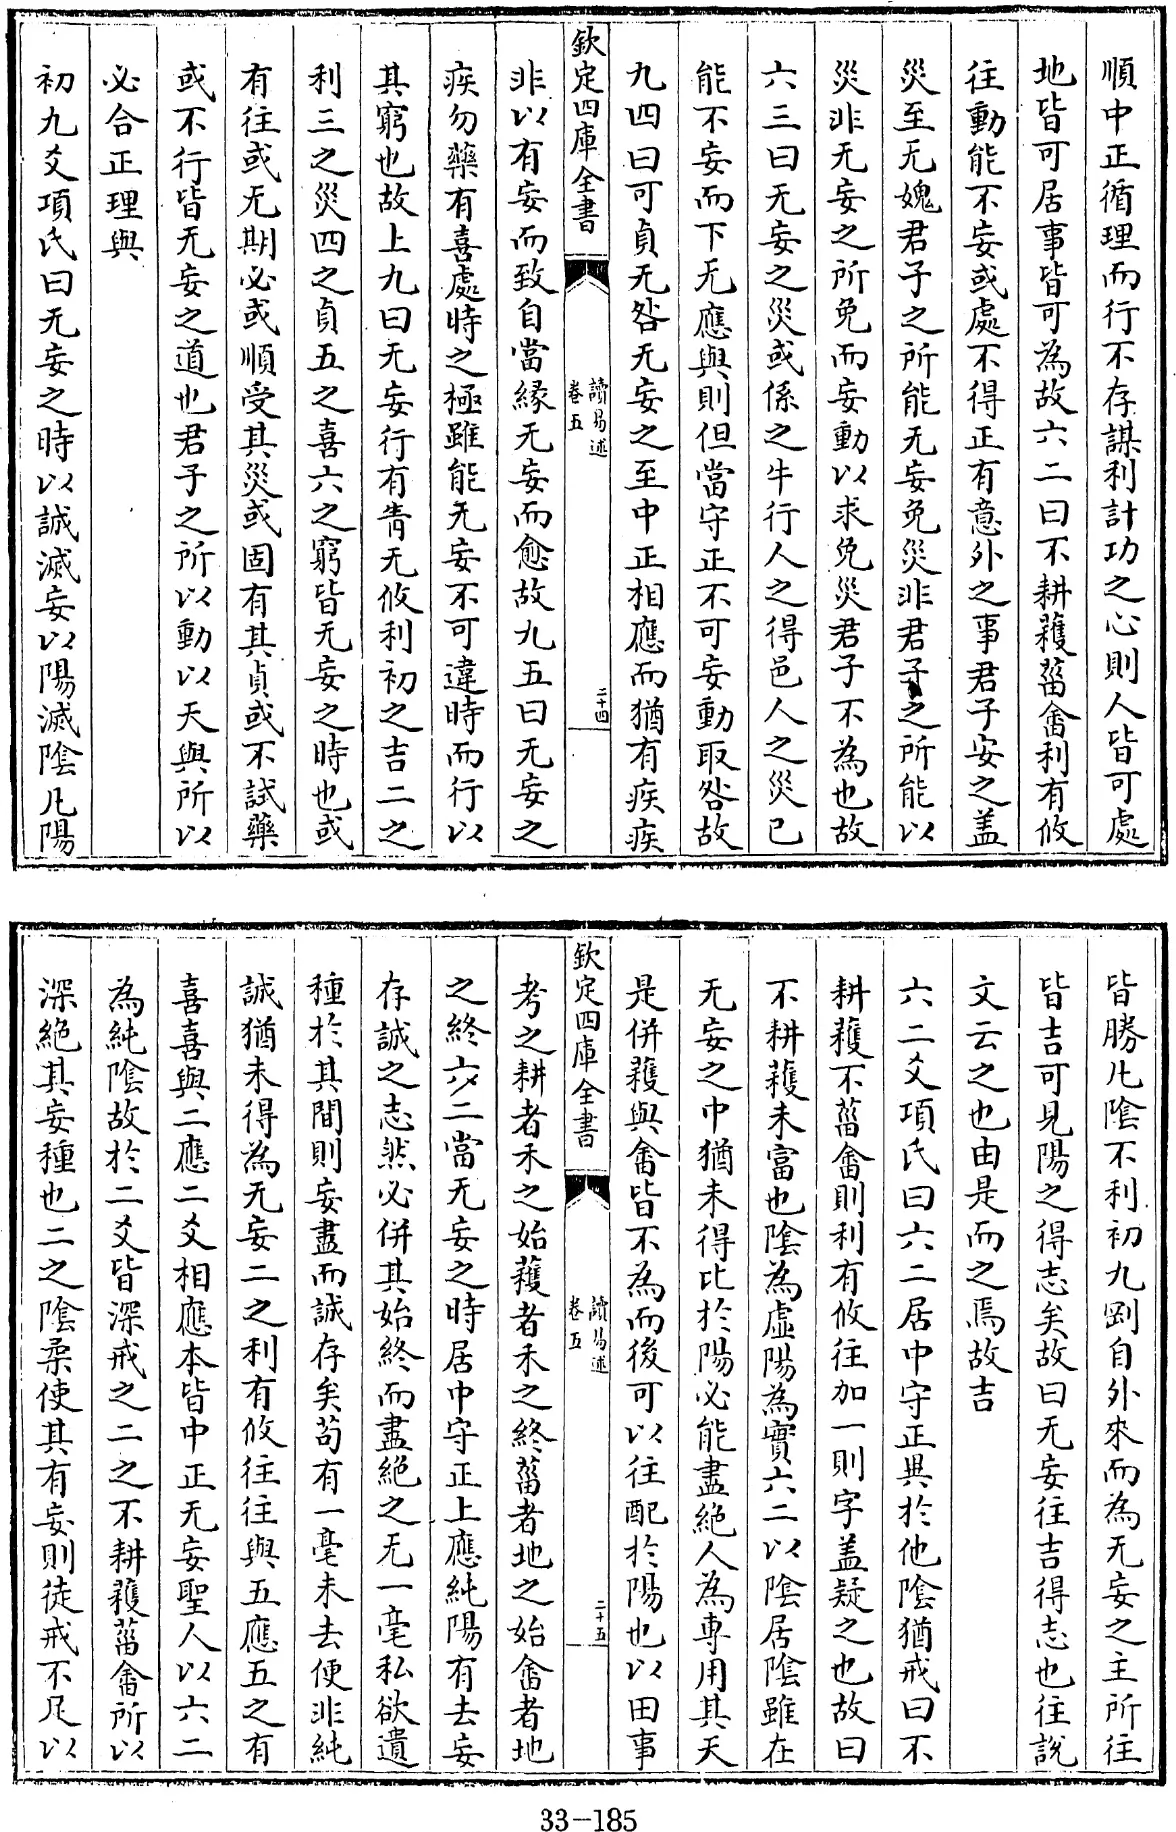 順中正循理而行不存謀利計功之心則人皆可處
地皆可居事皆可為故六二曰不耕穫菑畬利有攸
往動能不妄或處不得正有意外之事君子安之盖
災至无媿君子之所能无妄免災非君子之所能以
災非无妄之所免而妄動以求免災君子不為也故
六三曰无妄之災或係之牛行人之得邑人之災已
能不妄而下无應與則但當守正不可妄動取咎故
九四曰可貞无咎无妄之至中正相應而猶有疾疾
欽定四庫全書
讀易述
卷五
二十四
非以有妄而致自當緣无妄而愈故九五曰无妄之
疾勿藥有喜處時之極雖能无妄不可違時而行以
其窮也故上九曰无妄行有眚无攸利初之吉二之
利三之災四之貞五之喜六之窮皆无妄之時也或
有往或无期必或順受其災或固有其貞或不試藥
或不行皆无妄之道也君子之所以動以天與所以
必合正理與
初九爻項氏曰无妄之時以誠滅妄以陽滅陰凡陽
皆勝凡陰不利初九剛自外來而為无妄之主所往
皆吉可見陽之得志矣故曰无妄往吉得志也往說
文云之也由是而之焉故吉
六二爻項氏曰六二居中守正異於他陰猶戒曰不
耕穫不菑畬則利有攸往加一則字盖疑之也故曰
不耕穫未富也陰為虛陽為實六二以陰居陰雖在
无妄之中猶未得比於陽必能盡絶人為專用其天
是併穫與畬皆不為而後可以往配於陽也以田事
欽定四庫全書
讀易述
卷五
二十五
考之耕者禾之始穫者禾之終菑者地之始畬者地
之終六二當无妄之時居中守正上應純陽有去妄
存誠之志然必併其始終而盡絶之无一毫私欲遺
種於其間則妄盡而誠存矣苟有一毫未去便非純
誠猶未得為无妄二之利有攸往往與五應五之有
喜喜與二應二爻相應本皆中正无妄聖人以六二
為純陰故於二爻皆深戒之二之不耕穫菑畬所以
深絶其妄種也二之陰柔使其有妄則徒戒不足以
33-185